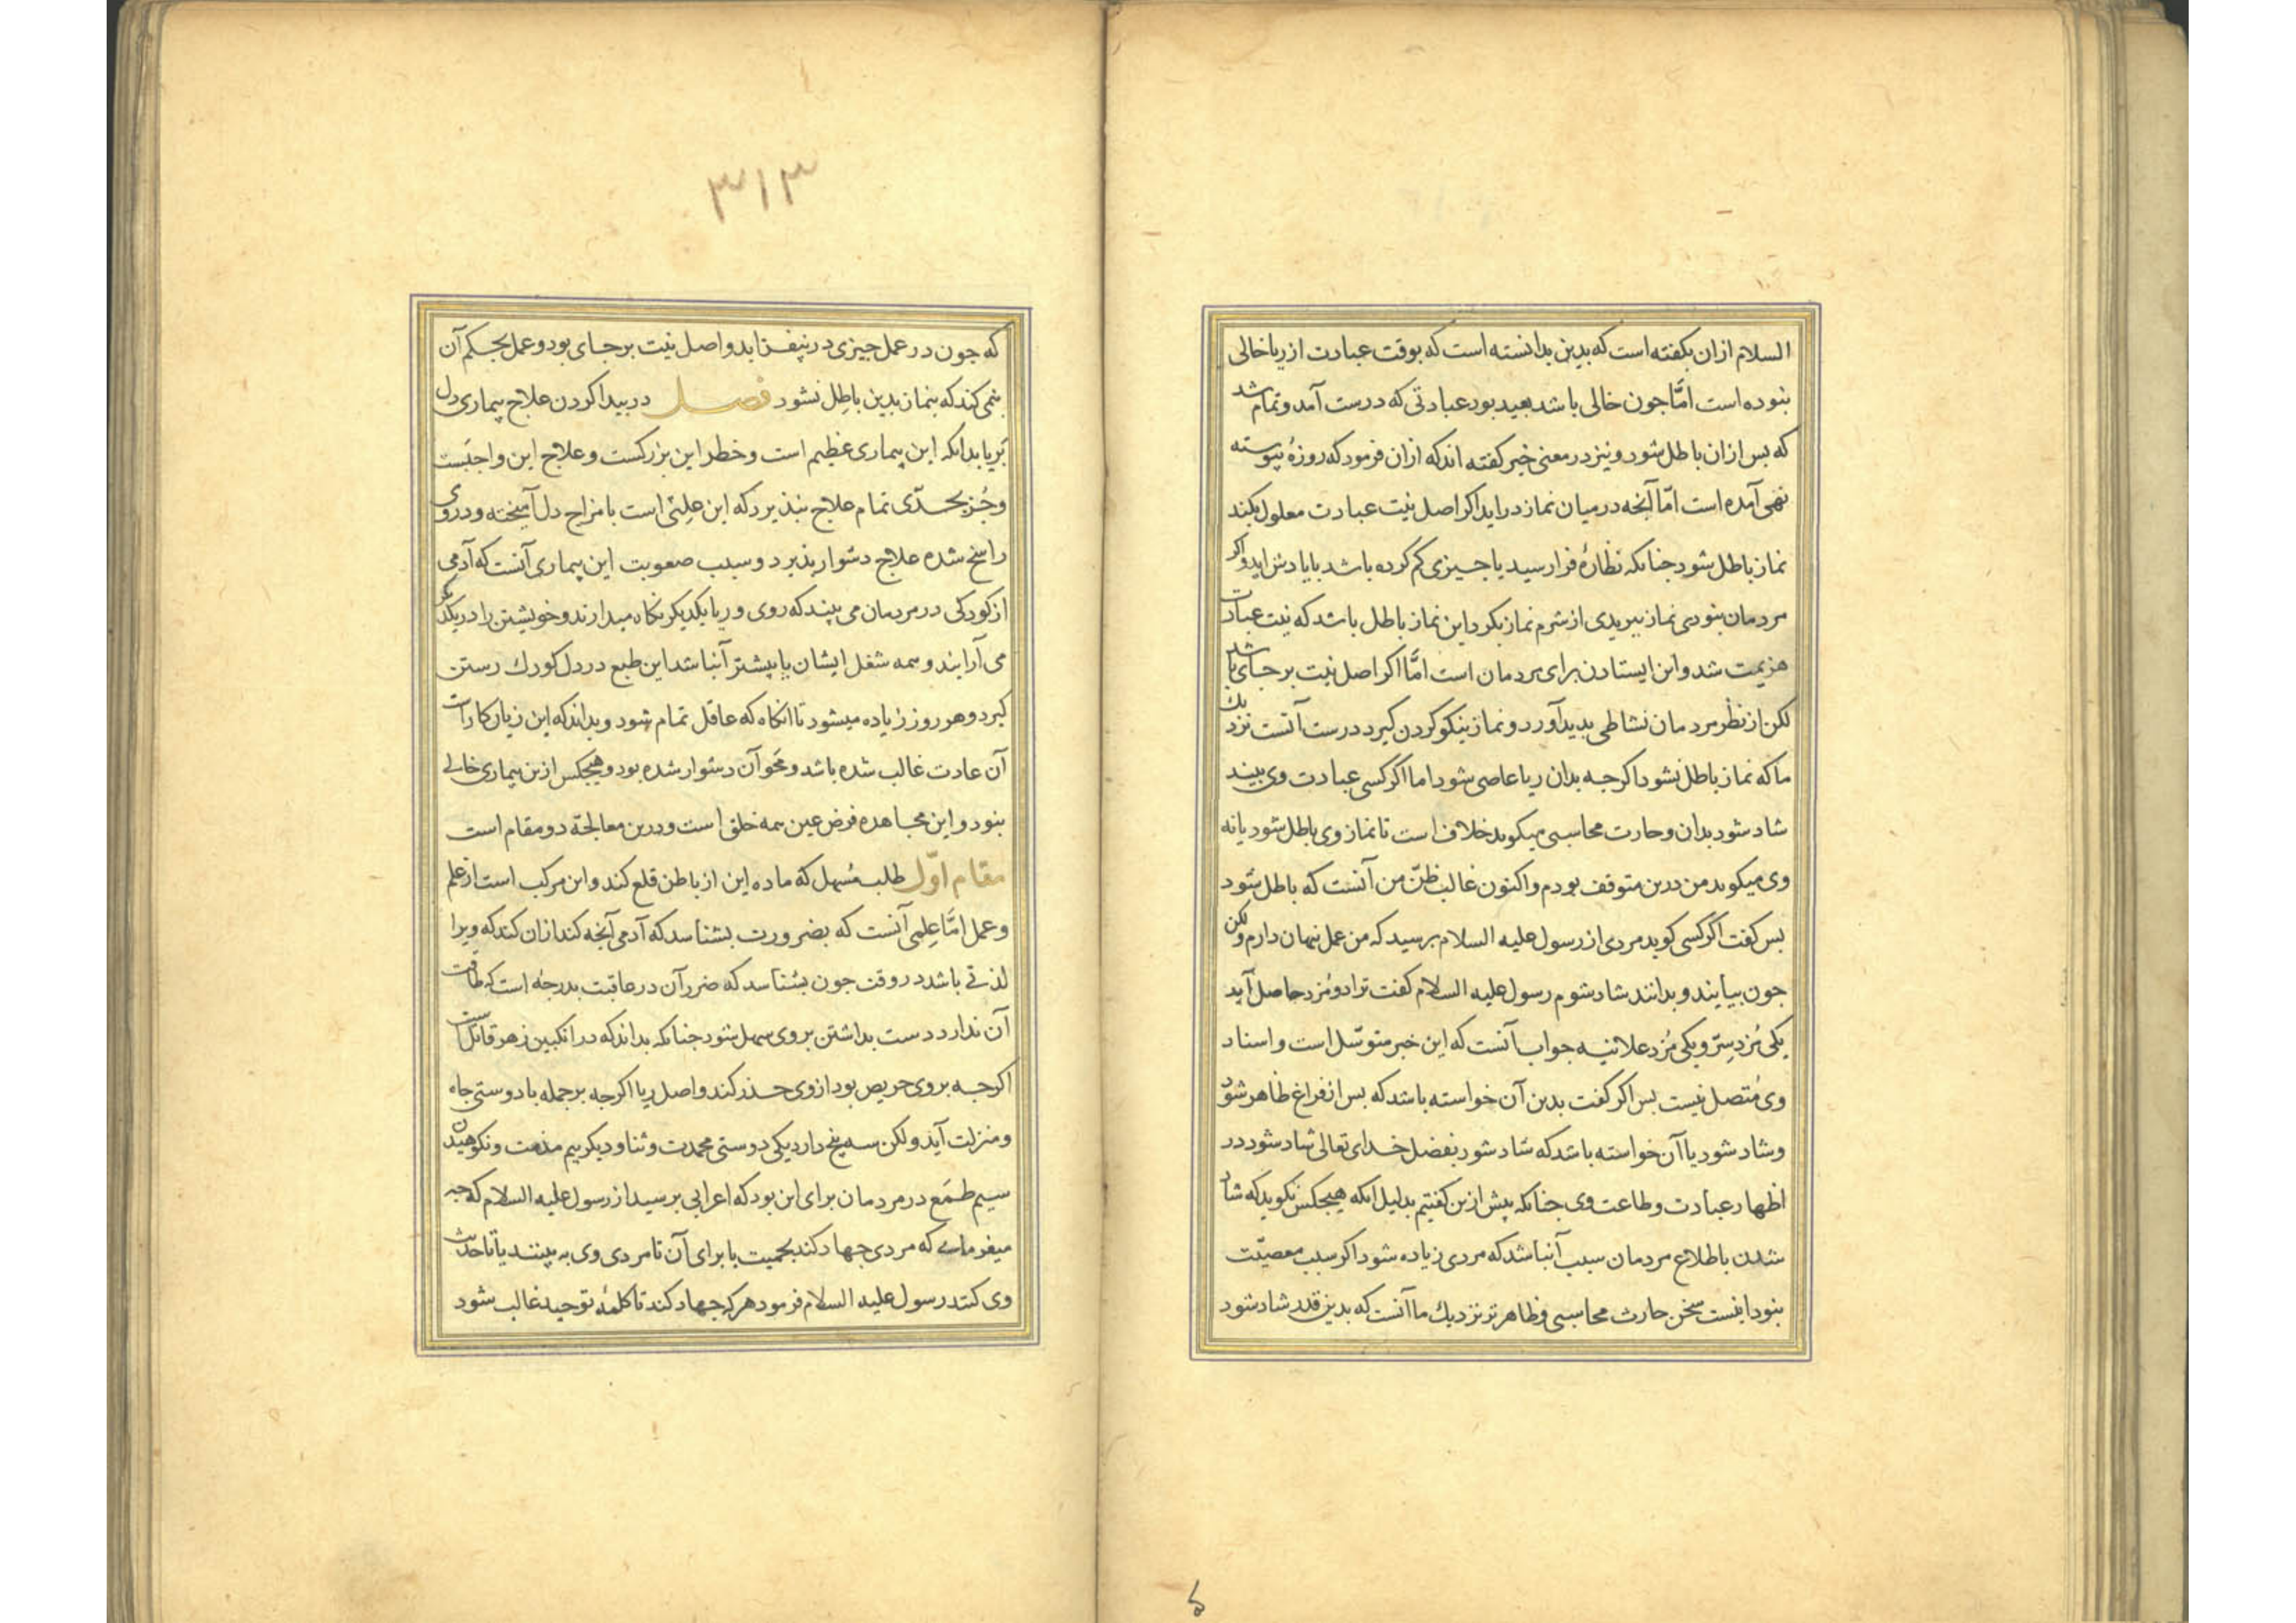 السلام ازان بکفته است که بدین بدانسته است که بوقت عبادت از ریا خالی
بنوده است امّا جون خالی باشد بعید بود عبادتی که درست آمد و تمام شد
که بس ازان باطل شود و نیز در معنی خبر کفته اند که ازان فرمود که روزهٔ پیوسته
نهی آمده است امّا آنجه در میان نماز دراید اکر اصل نیّت عبادت معلول بکند
نماز باطل شود جنانکه نظارهٔ فرا رسید یا جیزی کم کرده باشد با یادش اید و اکر
مردمان بنودی نماز ببریدی از شرم نماز بکرد این نماز باطل باشد که نیت عبادت
هزیمت شد و این ایستادن برای مردمان است امّا اکر اصل نیت بر جای باشد
لکن از نظر مردمان نشاطی بدید آورد و نماز نیکو کردن کیرد درست آنست نزدیک
ما که نماز باطل نشود اکرجه بدان ریا عاصی شود اما اکر کسی عبادت وی بیند
شاد شود بدان و حارث محاسبی میکوید خلاف است تا نماز وی باطل شود یا نه
وی میکوید من درین متوقف بودم و اکنون غالب ظنّ من آنست که باطل شود
بس کفت اکر کسی کوید مردی از رسول علیه السلام برسید که من عمل نهان دارم ولکن
جون بیایند و بدانند شاد شوم رسول علیه السلام کفت ترا دو مُزد حاصل آید
یکی مُزد سِرّ و یکی مُزد علانیه جواب آنست که این خبر متوسّل است و اسناد
وی مُتصل نیست بس اکر کفت بدین آن خواسته باشد که بس از فراغ ظاهر شود
و شاد شود یا آن خواسته باشد که شاد شود بفضل خدای تعالی شاد شود در
اظهار عبادت و طاعت وی جنانکه پیش ازین کفتیم بدلیل انکه هیجکس نکوید که شاد
شدن باطلاع مردمان سبب آنباشد که مردی زیاده شود اکر سبب معصیّت
بنود اینست سخن حارث محاسبی و ظاهر تر نزدیک ما آنست که بدین قدر شاد شود
۳۱۳
که جون در عمل جیزی در نیفزاید و اصل نیت بر جای بود و عمل بحکم آن
نمی کند که نماز بدین باطِل نشود فصل در بیدا کردن علاج بیماری دل
بَریا بدانکه این بیماری عظیم است و خطر این بزرکست و علاج این واجبست
و جُز بجدّی تمام علاج نبذیرد که این علتی است با مزاج دل آمیخته و در وی
راسخ شده علاج دشوار بذیرد و سبب صعوبت این بیماری آنست که آدمی
از کودکی در مردمان می بیند که روی و ریا یکدیکر نکاه میدارند و خویشتن را در یکدیکر
می آرایند و همه شغل ایشان یا بیشتر آنباشد این طبع در دل کودک رستن
کیرد و هر روز زیاده میشود تا انکاه که عاقل تمام شود و بداند که این زیان کارست
آن عادت غالب شده باشد و مَحو آن دشوار شده بود و هیجکس ازین بیماری خالی
بنود و این مجاهده فرض عین همه خلق است و درین معالجة دو مقام است
مقام اوّل طلب مُسهل که ماده این از باطن قلع کند و این مرکب است از علم
و عمل امّا عِلمی آنست که بضرورت بشناسد که آدمی آنجه کند ازان کند که ویرا
لذتی باشد در وقت جون بشناسد که ضرر آن در عاقبت بدرجهٔ است که طاقت
آن ندارد دست بداشتن بر وی سهل شود جنانکه بداند که در انکبین زهر قاتل است
اکرجه بر وی حریص بود از وی حذر کند و اصل ریا اکرجه بر جمله با دوستی جاه
و منزلت آید ولکن سه بیخ دارد یکی دوستی محمدت و ثنا و دیکر بیم مذمت و نکوهیدن
سیم طَمَع در مردمان برای این بود که اعرابی برسید از رسول علیه السلام که جه
میفرمایی که مردی جهاد کند بحمیت یا برای آن تا مردی وی به بینند یا تا حدیث
وی کنند رسول علیه السلام فرمود هر که جهاد کند تا کلمهٔ توحید غالب شود